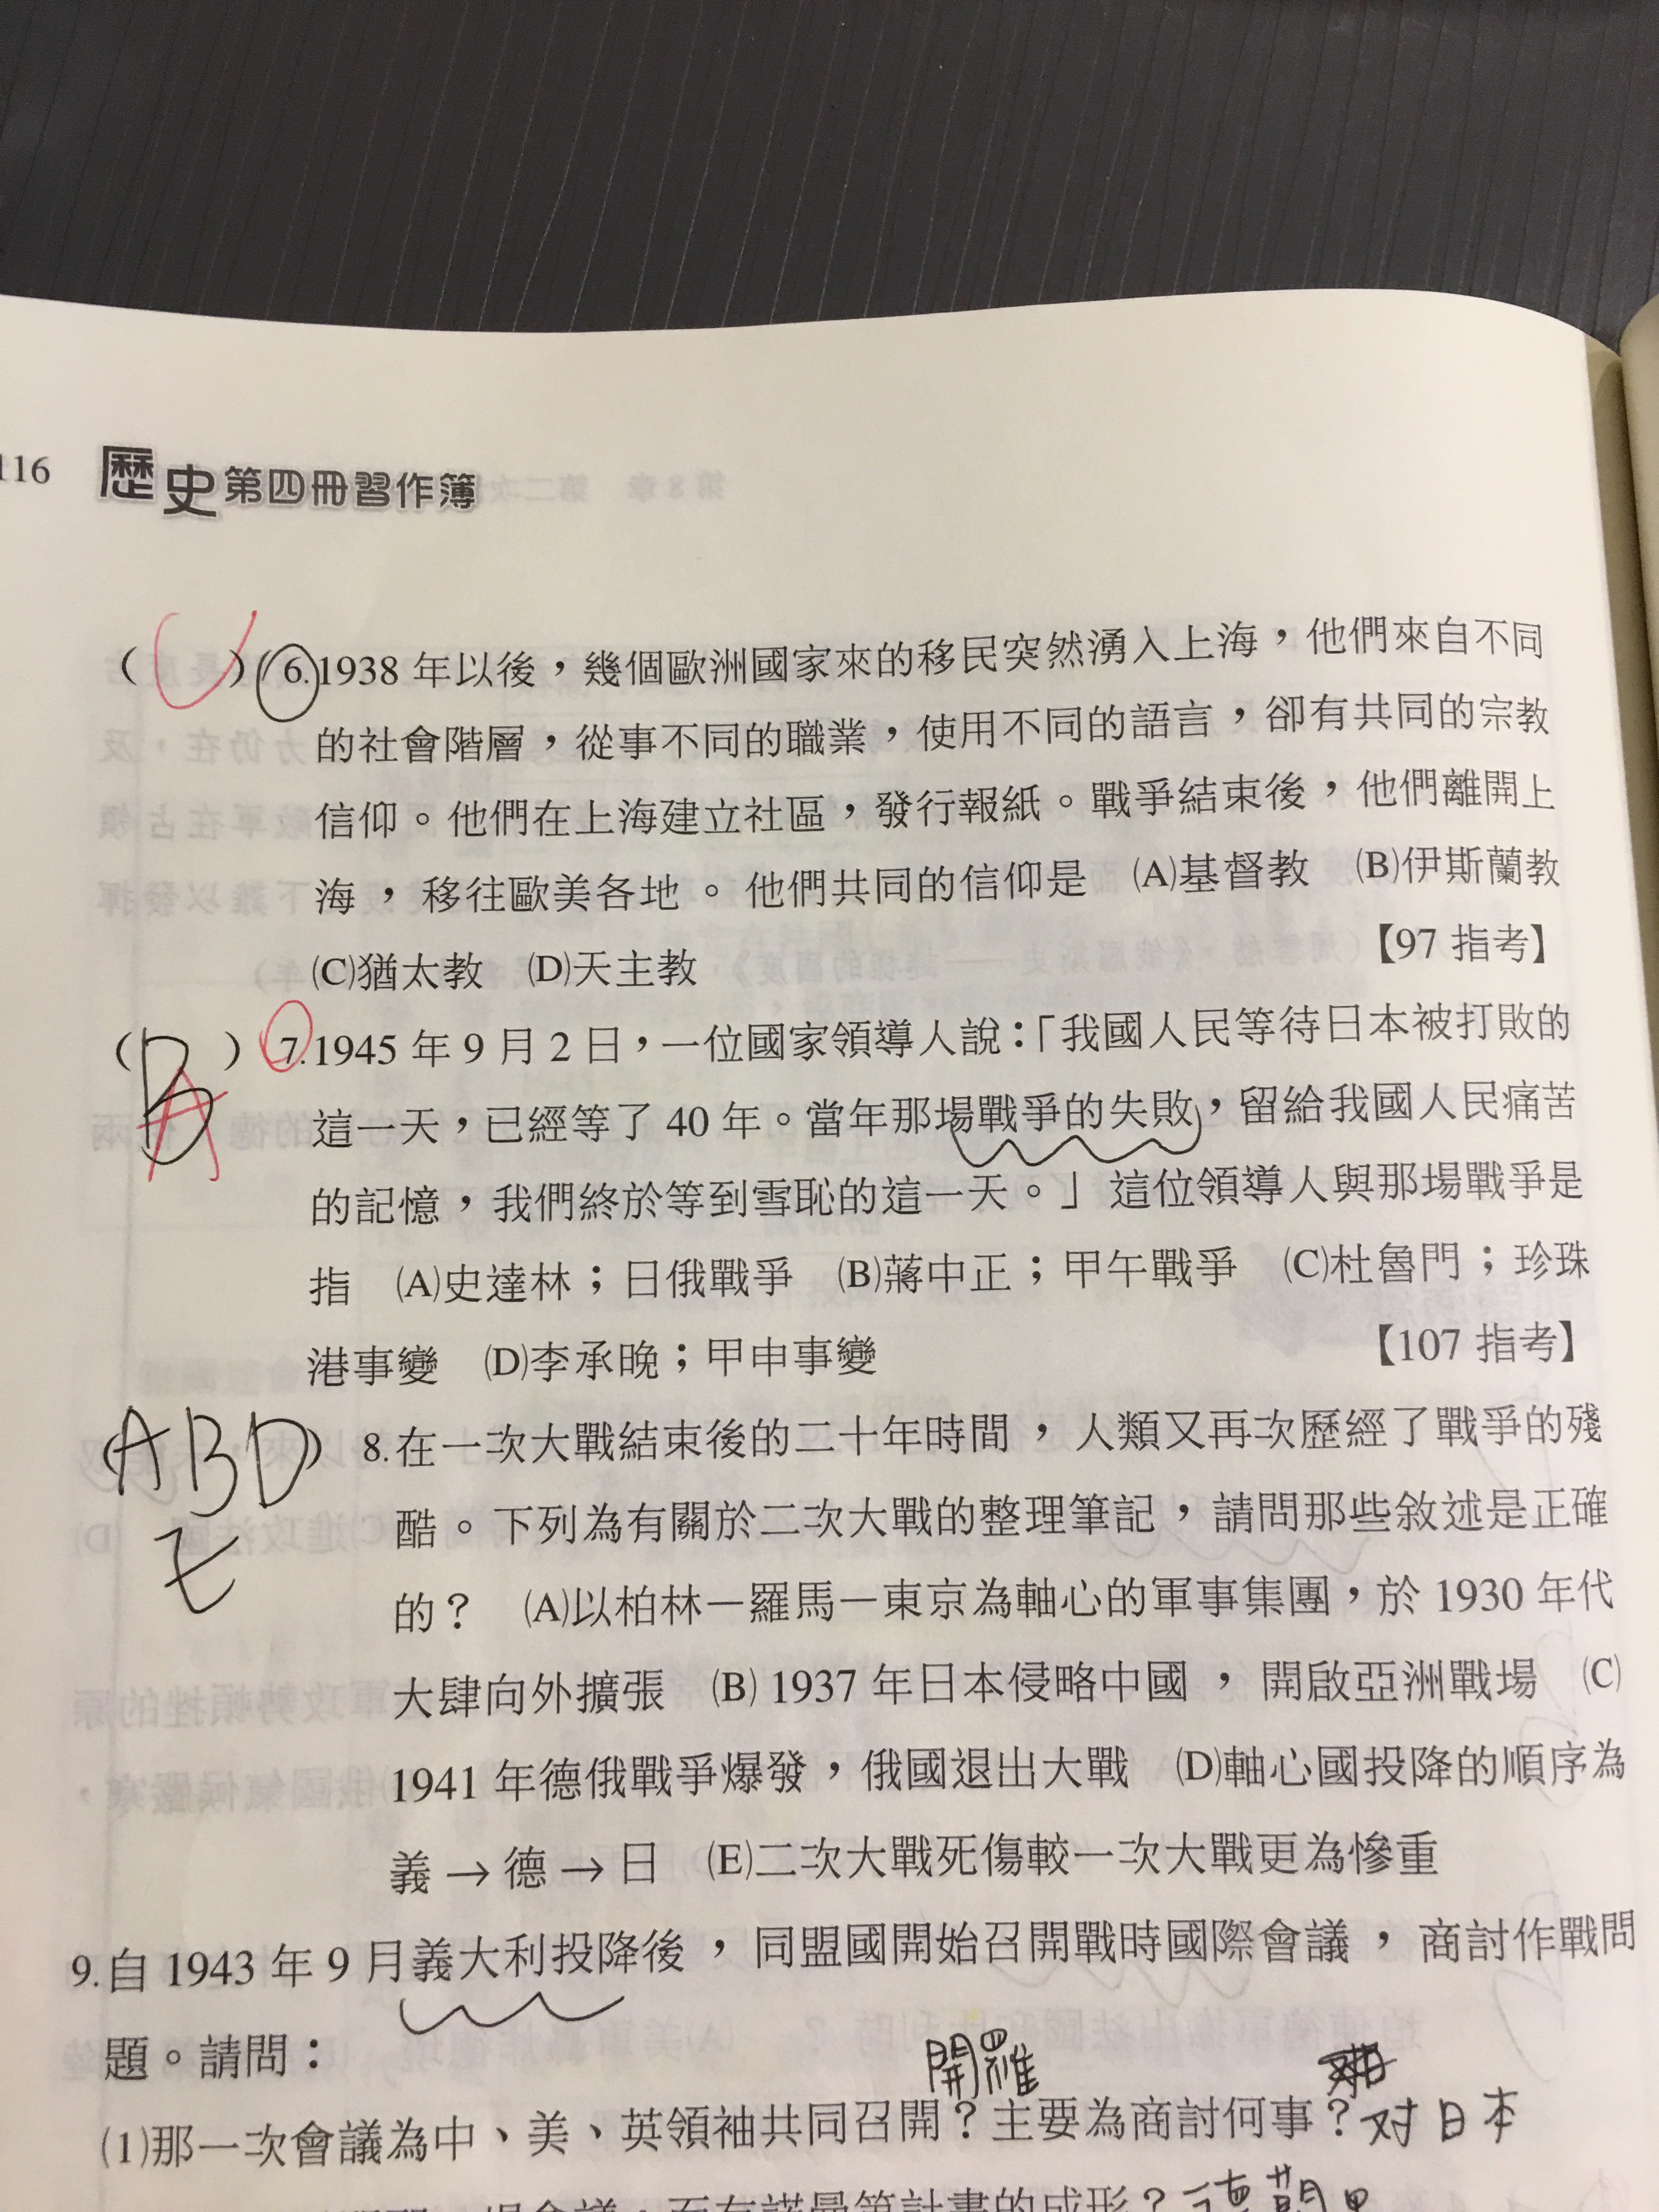 116 歷史第四冊習作簿
( C ) 6. 1938 年以後，幾個歐洲國家來的移民突然湧入上海，他們來自不同
的社會階層，從事不同的職業，使用不同的語言，卻有共同的宗教
信仰。他們在上海建立社區，發行報紙。戰爭結束後，他們離開上
海，移往歐美各地。他們共同的信仰是 (A)基督教 (B)伊斯蘭教
(C)猶太教 (D)天主教 【97 指考】
( B ) 7. 1945 年 9 月 2 日，一位國家領導人說：「我國人民等待日本被打敗的
A
這一天，已經等了 40 年。當年那場戰爭的失敗，留給我國人民痛苦
的記憶，我們終於等到雪恥的這一天。」這位領導人與那場戰爭是
指 (A)史達林；日俄戰爭 (B)蔣中正；甲午戰爭 (C)杜魯門；珍珠
港事變 (D)李承晚；甲申事變 【107 指考】
(ABD) 8. 在一次大戰結束後的二十年時間，人類又再次歷經了戰爭的殘
E
酷。下列為有關於二次大戰的整理筆記，請問那些敘述是正確
的？ (A)以柏林－羅馬－東京為軸心的軍事集團，於 1930 年代
大肆向外擴張 (B) 1937 年日本侵略中國，開啟亞洲戰場 (C)
1941 年德俄戰爭爆發，俄國退出大戰 (D)軸心國投降的順序為
義 → 德 → 日 (E)二次大戰死傷較一次大戰更為慘重
9. 自 1943 年 9 月義大利投降後，同盟國開始召開戰時國際會議，商討作戰問
題。請問：
開羅
(1)那一次會議為中、美、英領袖共同召開？主要為商討何事？对日本